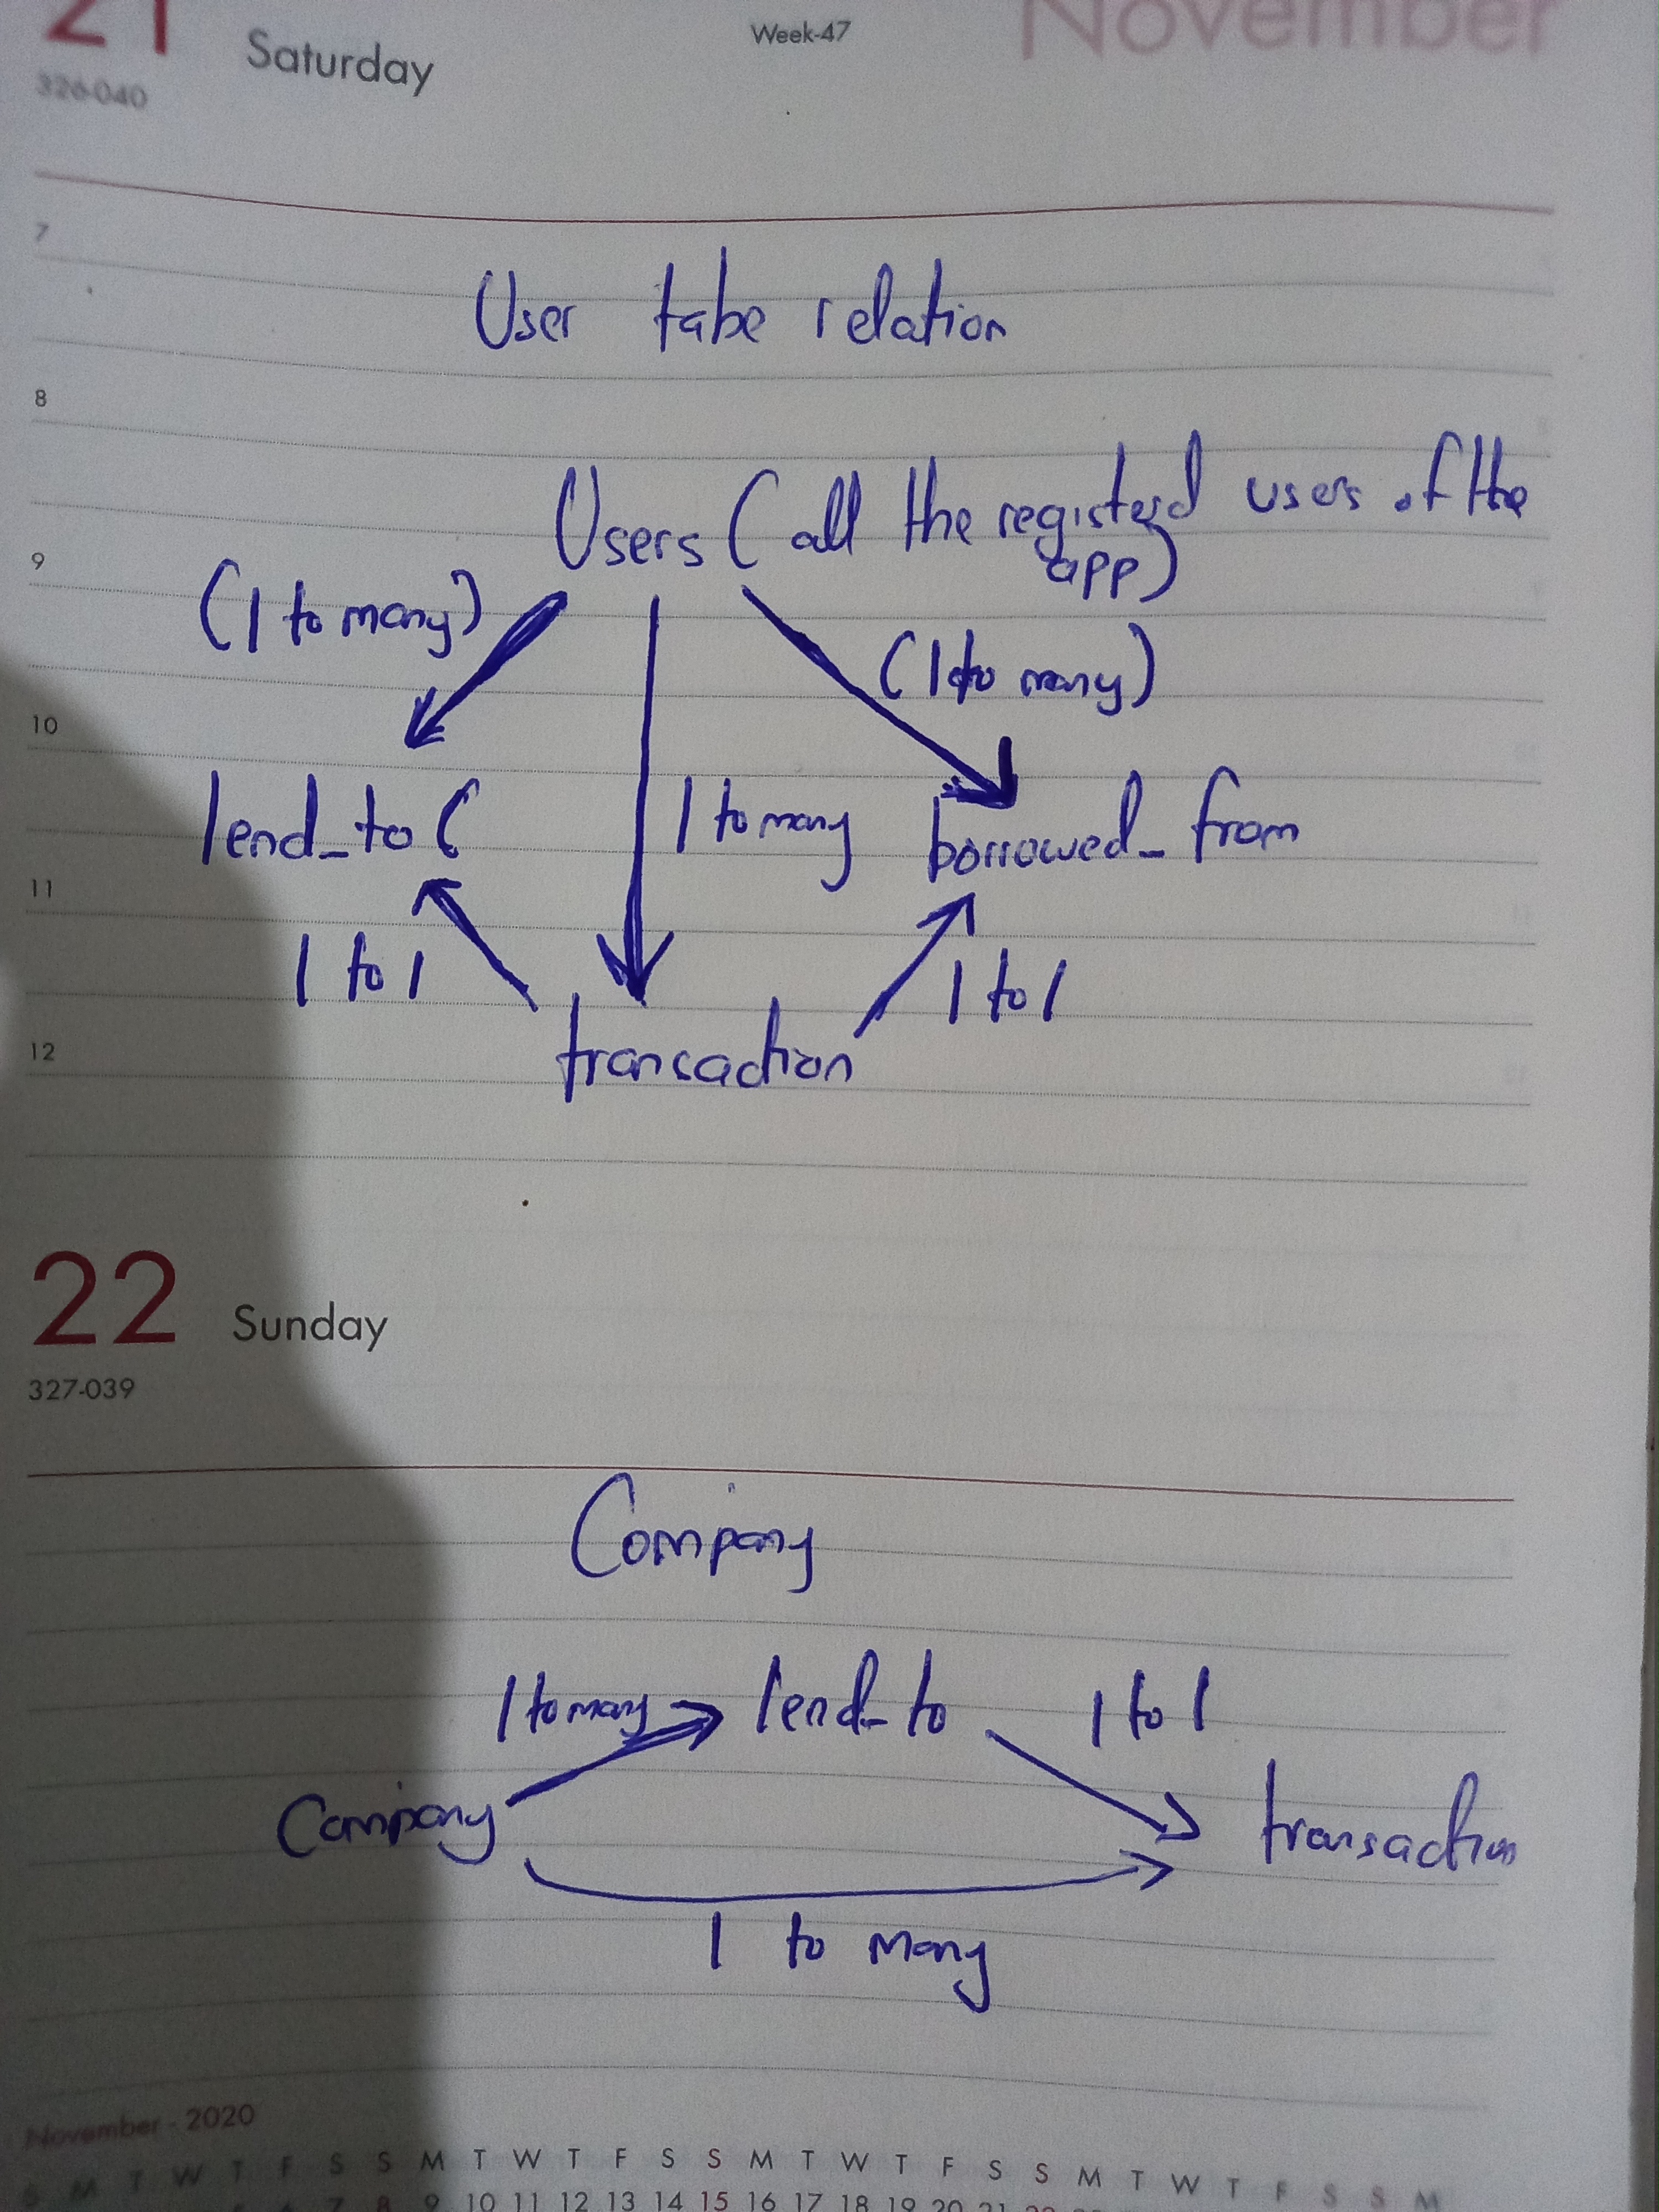 21 Saturday Week-47 November
326-040
7
User tabe relation
8
Users ( all the registerd users of the
app)
9
(1 to many)
(1 to many)
10
lend_to (
1 to many
borrowed_from
11
1 to 1
1 to 1
12
transaction
22 Sunday
327-039
Company
1 to many
lend_to
1 to 1
Company
transaction
1 to many
November - 2020
S M T W T F S S M T W T F S S M T W T F S S M T W T F S S M
7 8 9 10 11 12 13 14 15 16 17 18 19 20 21 22